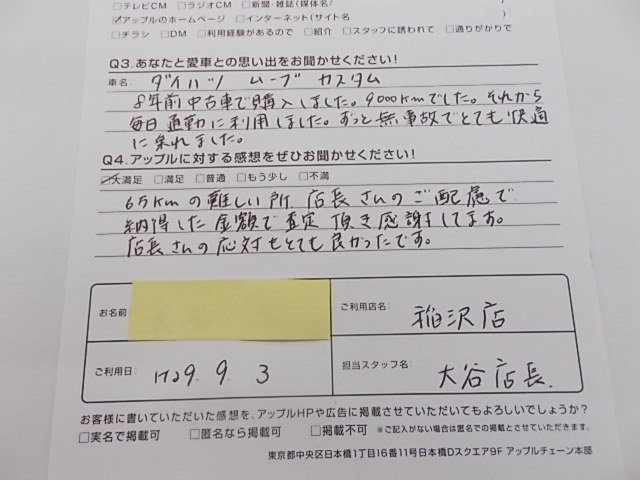 □テレビCM □ラジオCM □新聞・雑誌(媒体名/
☑アップルのホームページ □インターネット(サイト名 )
□チラシ □DM □利用経験があるので □紹介 □スタッフに誘われて □通りがかりで
Q3.あなたと愛車との思い出をお聞かせください!
車名: ダイハツ ムーブ カスタム
8年前中古車で購入しました。9000kmでした。それから
毎日通勤に利用しました。ずっと無事故でとても快適
に乗れました。
Q4.アップルに対する感想をぜひお聞かせください!
☑大満足 □満足 □普通 □もう少し □不満
6万kmの難しい所 店長さんのご配慮で
納得した金額で査定頂き感謝してます。
店長さんの応対もとても良かったです。
お名前
ご利用店名: 稲沢店
ご利用日: H29. 9. 3
担当スタッフ名: 大谷店長.
お客様に書いていただいた感想を、アップルHPや広告に掲載させていただいてもよろしいでしょうか?
□実名で掲載可 □匿名なら掲載可 □掲載不可 ※ご記入がない場合は匿名での掲載とさせていただきます。
東京都中央区日本橋1丁目16番11号日本橋Dスクエア9F アップルチェーン本部